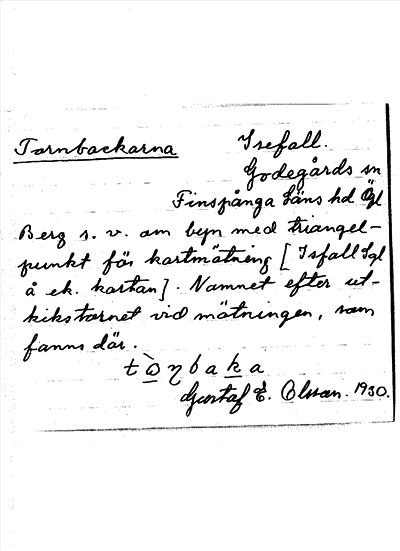 Tornbackarna Isefall.
Godegårds sn
Finspånga Läns hd Ögl
Berg s. v. om byn med triangel-
punkt för kartmätning [Isfall Sgl
å ek. kartan]. Namnet efter ut-
kikstornet vid mätningen, som
fanns där.
Gustaf E. Olsson. 1930.